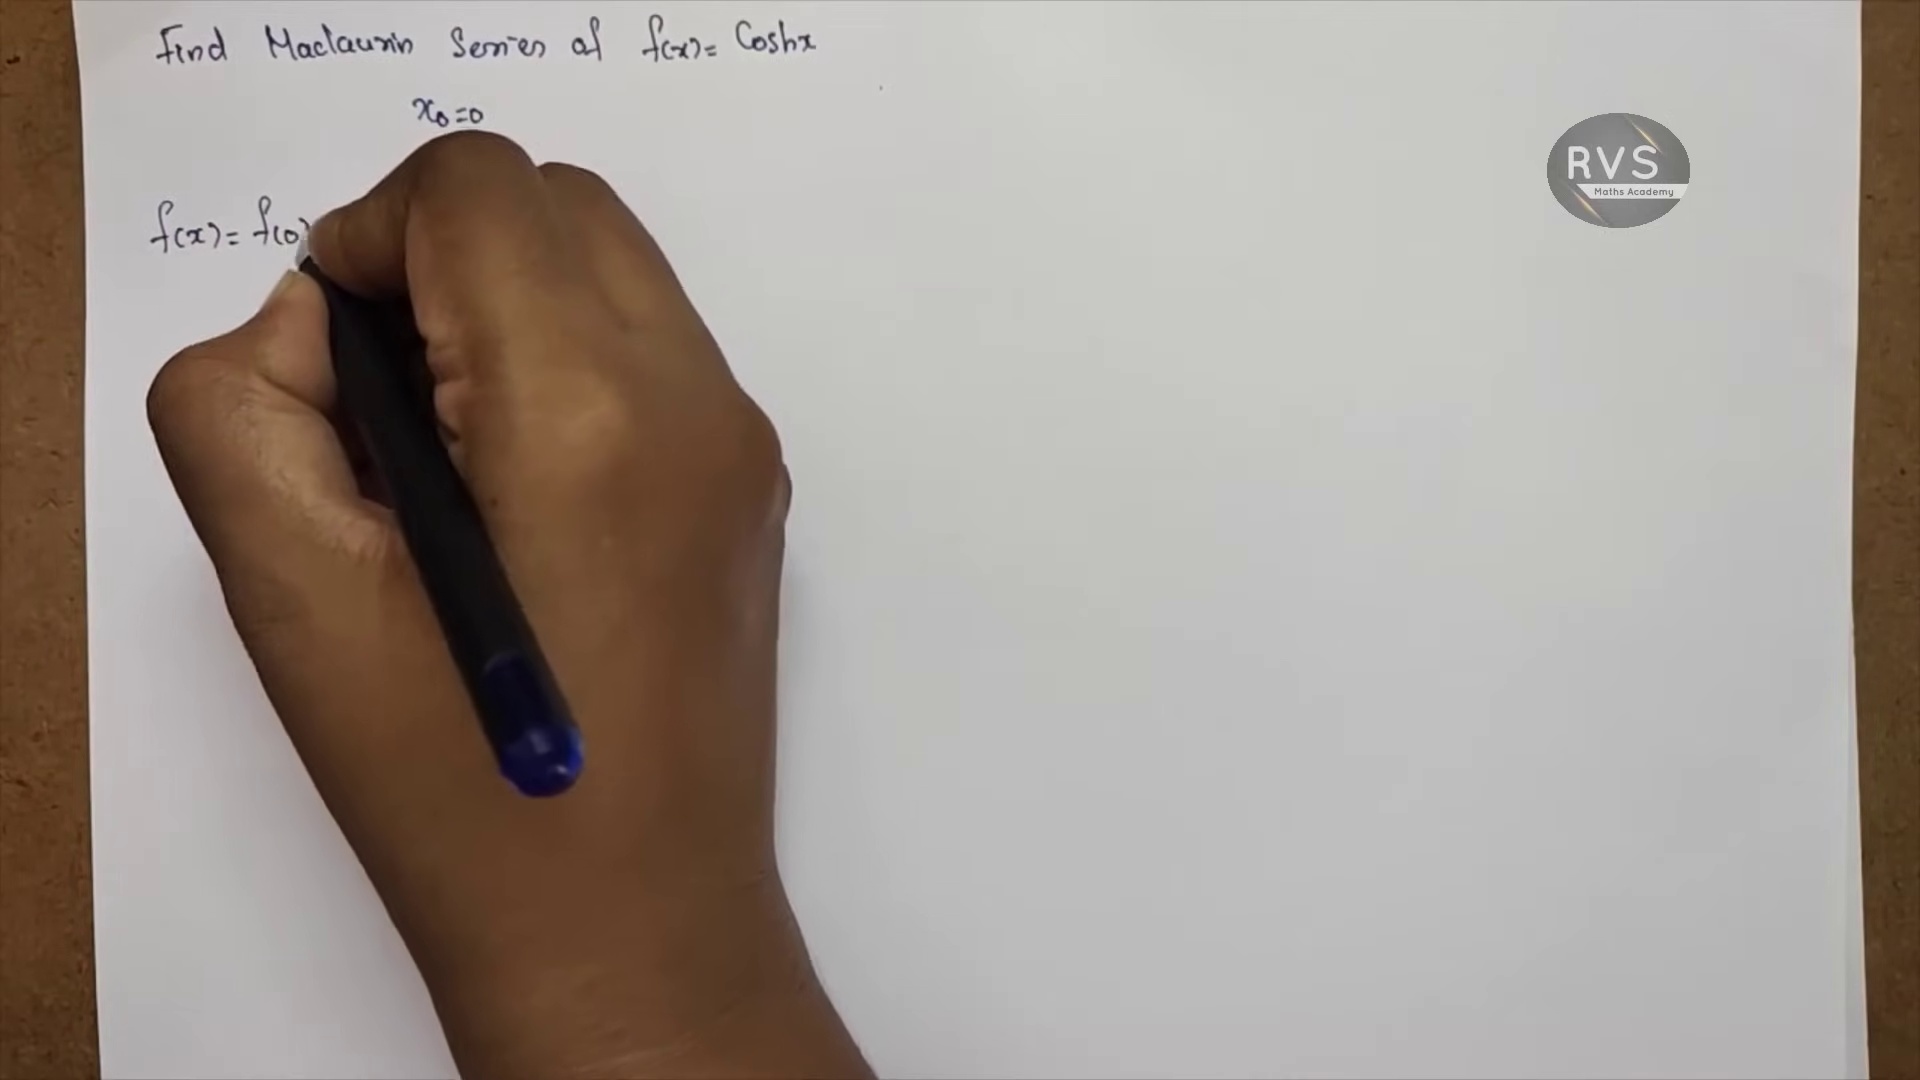 Find Maclaurin Series of f(x) = Coshx
x₀=0
f(x) = f(0)
RVS
Maths Academy